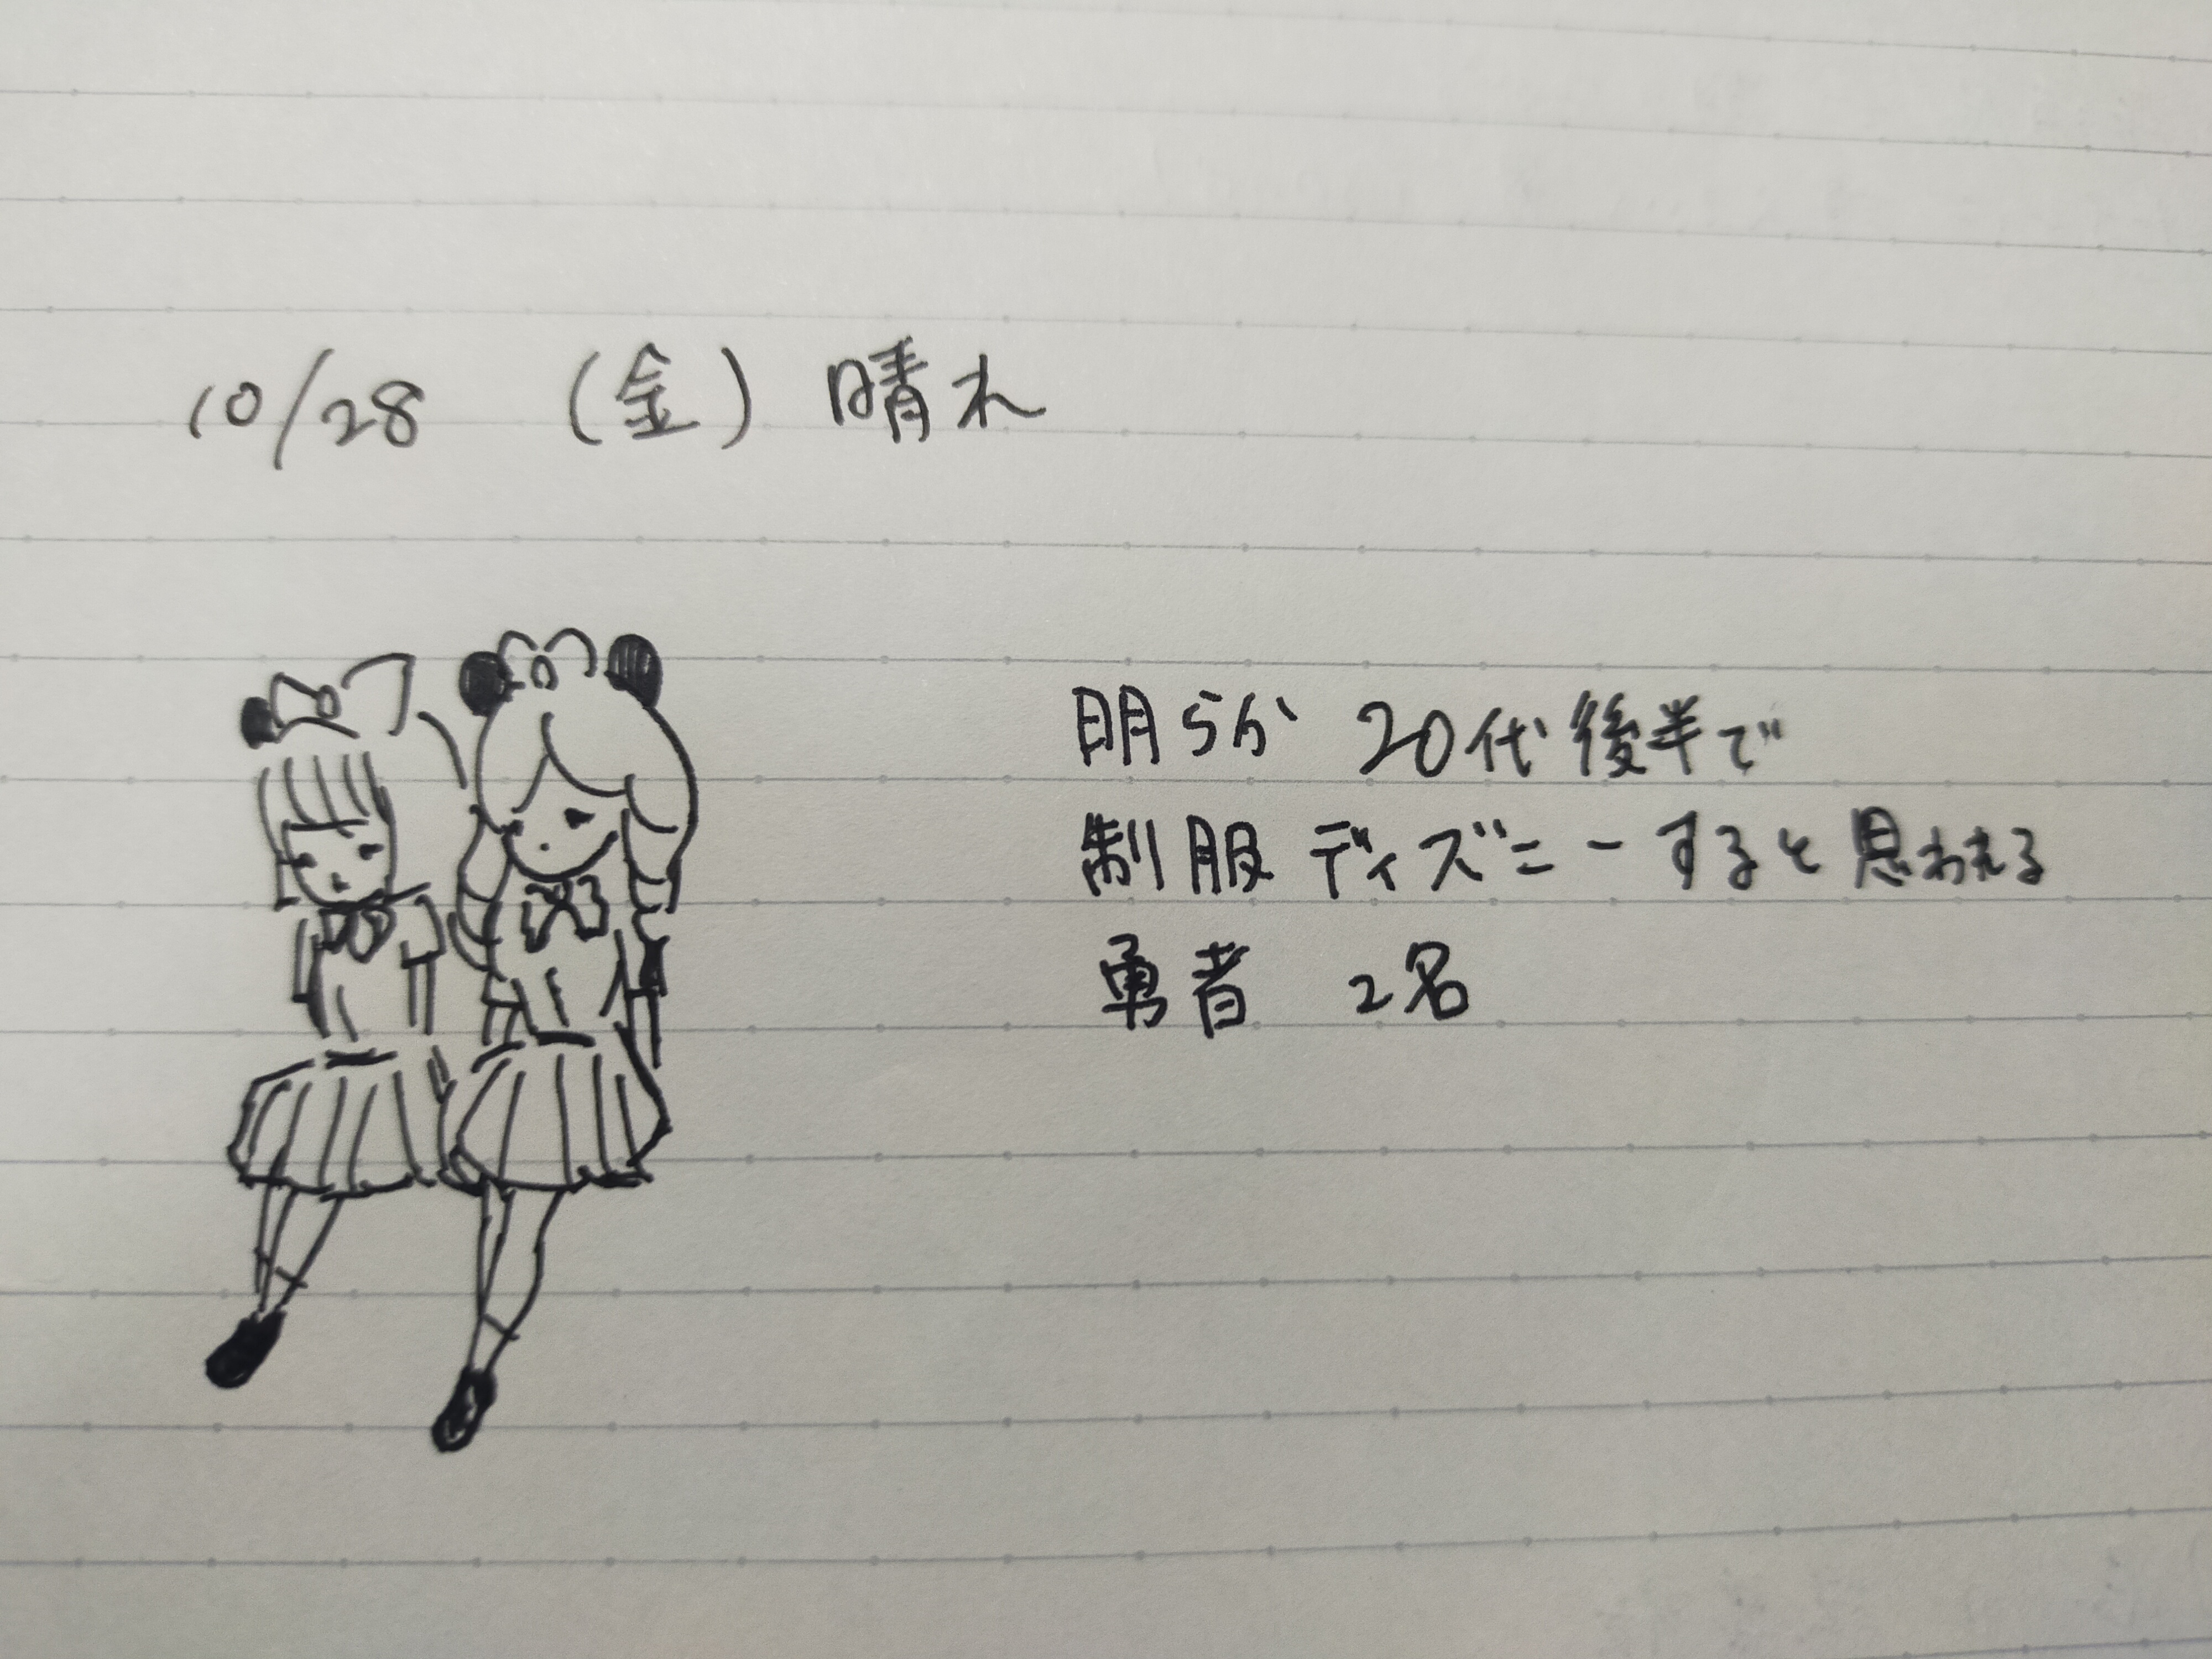 10/28 (金) 晴れ
明らか 20代後半で
制服ディズニーすると思われる
勇者 2名